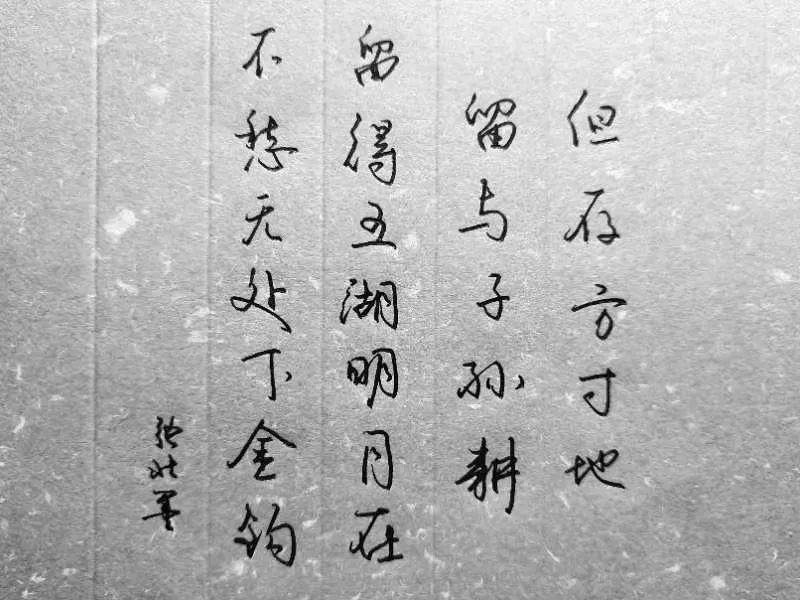 但存方寸地
留与子孙耕
留得五湖明月在
不愁无处下金钩